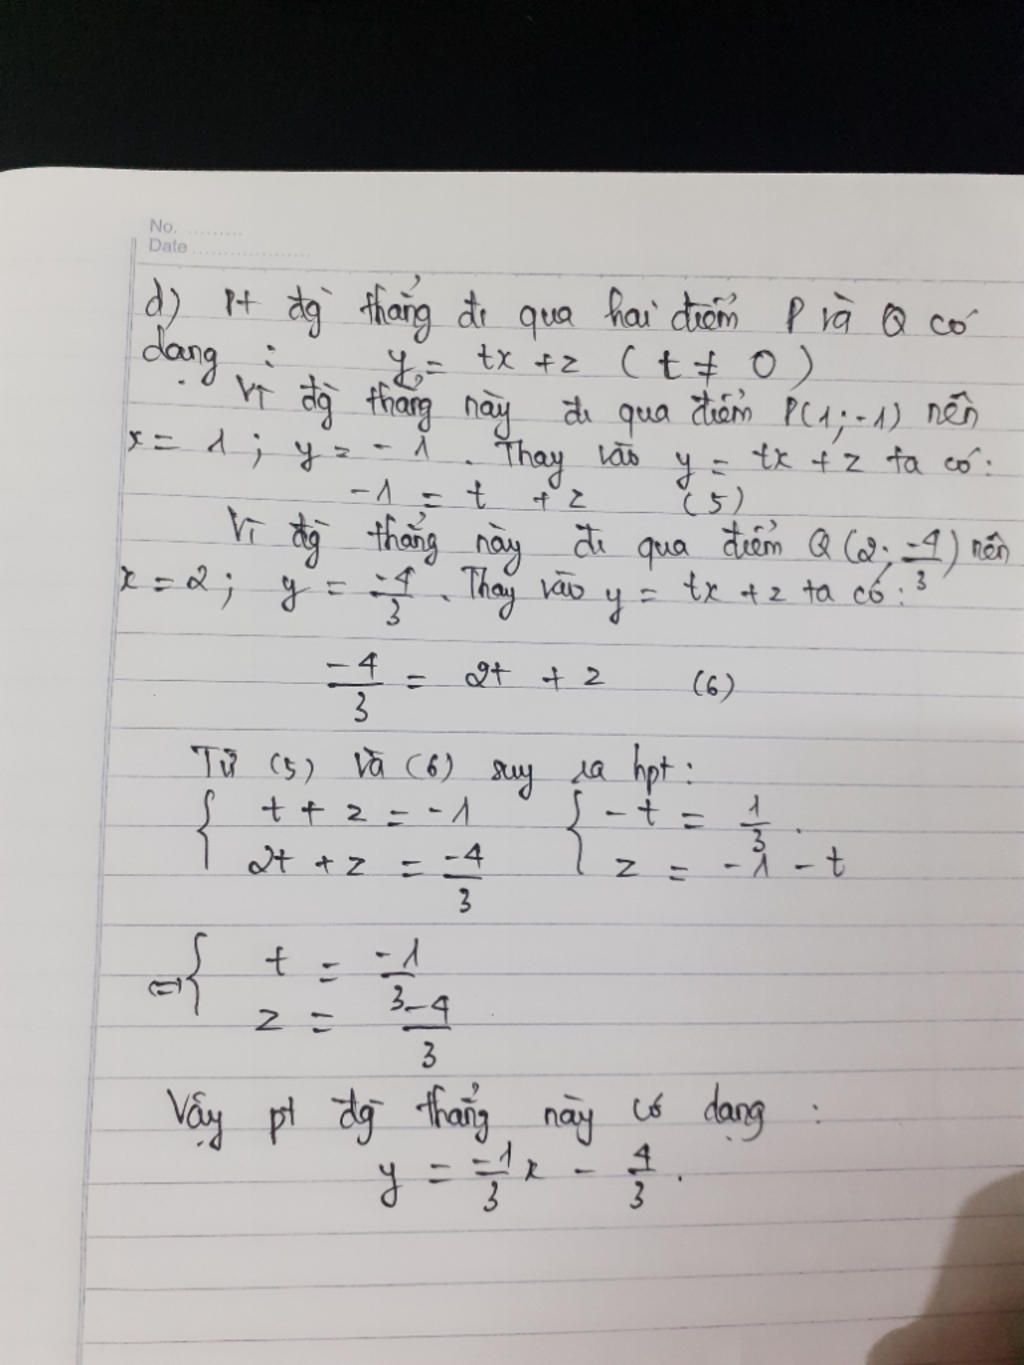 No. .........
Date ...................
d) Pt đg thẳng đi qua hai điểm P và Q có
dạng : y = tx + z ( t ≠ 0 )
Vì đg thẳng này đi qua điểm P(1;-1) nên
x = 1 ; y = -1 . Thay vào y = tx + z ta có :
-1 = t + z (5)
Vì đg thẳng này đi qua điểm Q (2; -4/3) nên
x = 2 ; y = -4/3 . Thay vào y = tx + z ta có :
-4/3 = 2t + z (6)
Từ (5) và (6) suy ra hpt :
{ t + z = -1 { -t = 1/3 .
2t + z = -4/3 z = -1 - t
⇔ { t = -1/3
z = -4/3
Vậy pt đg thẳng này có dạng :
y = -1/3 x - 4/3 .